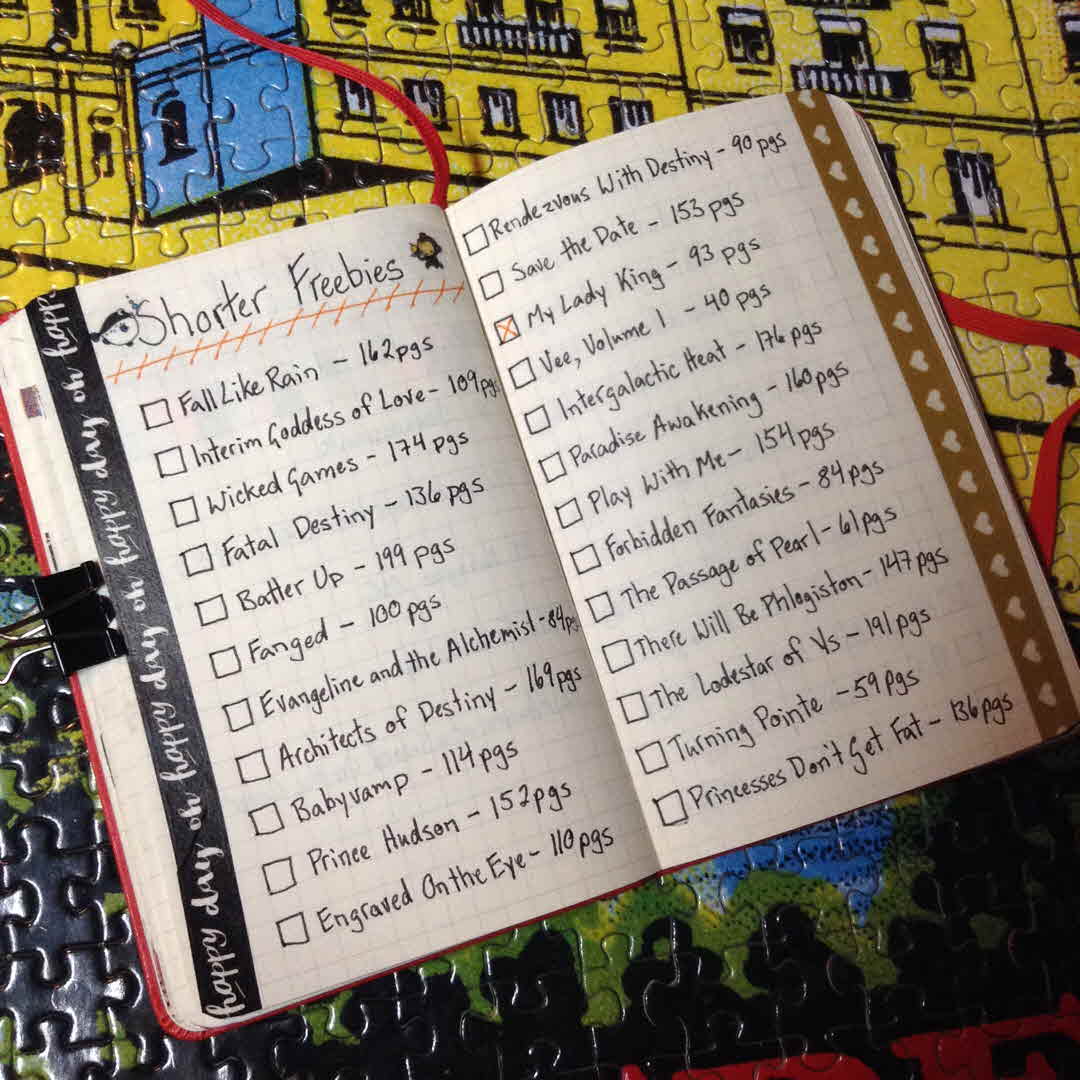 Shorter Freebies
Fall Like Rain - 162pgs
Interim Goddess of Love - 109pgs
Wicked Games - 174 pgs
Fatal Destiny - 136 pgs
Batter Up - 199 pgs
Fanged - 100 pgs
Evangeline and the Alchemist - 84pgs
Architects of Destiny - 169pgs
Babyvamp - 114pgs
Prince Hudson - 152pgs
Engraved On the Eye - 110 pgs
Rendezvous With Destiny - 90 pgs
Save the Date - 153 pgs
My Lady King - 93 pgs
Vee, Volume 1 - 40 pgs
Intergalactic Heat - 176 pgs
Paradise Awakening - 160pgs
Play With Me - 154 pgs
Forbidden Fantasies - 84 pgs
The Passage of Pearl - 61 pgs
There Will Be Phlogiston - 147 pgs
The Lodestar of Ys - 191 pgs
Turning Pointe - 59 pgs
Princesses Don't Get Fat - 136 pgs
happy day oh happy day oh happy day oh happy day oh happy